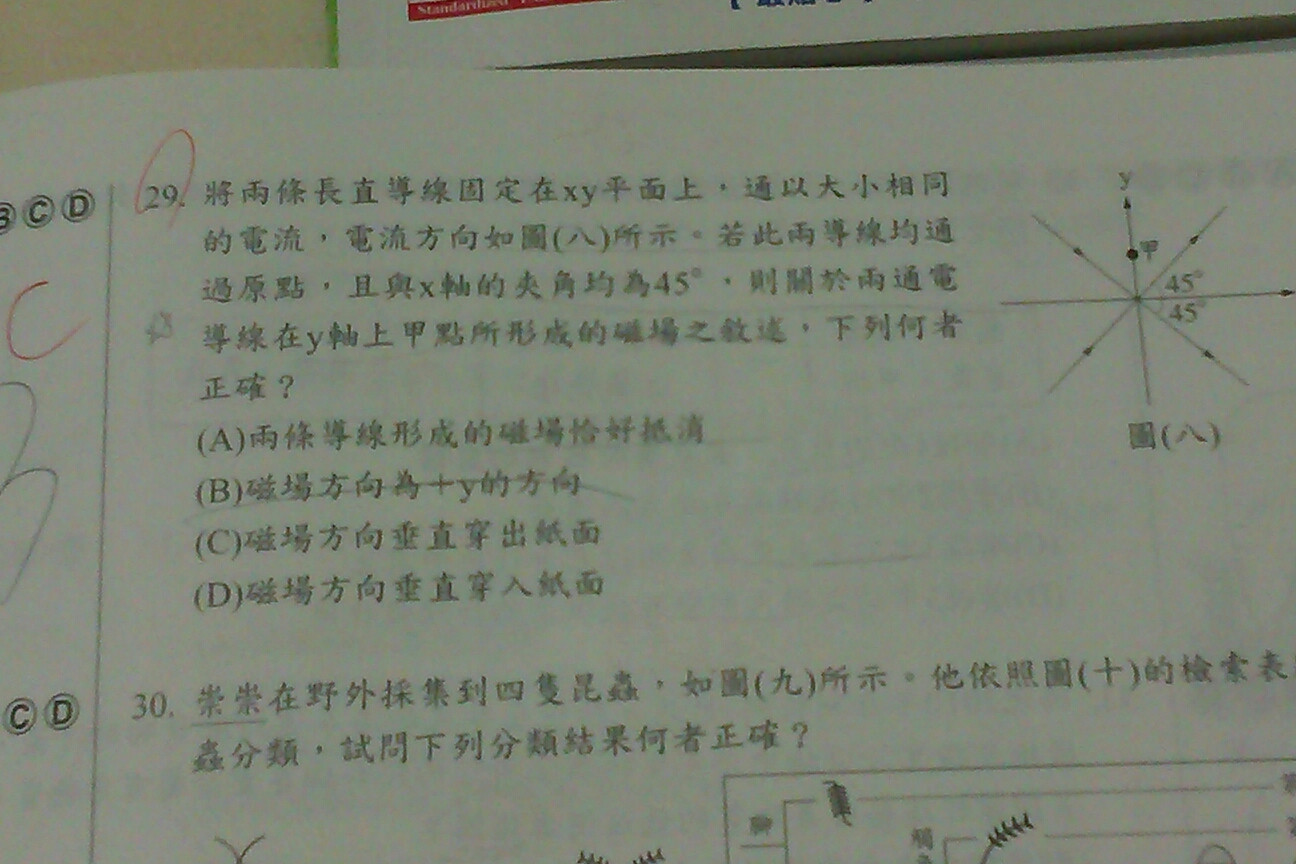 Standardized
B C D
29. 將兩條長直導線固定在xy平面上，通以大小相同
的電流，電流方向如圖(八)所示。若此兩導線均通
過原點，且與x軸的夾角均為45°，則關於兩通電
導線在y軸上甲點所形成的磁場之敘述，下列何者
正確？
(A)兩條導線形成的磁場恰好抵消
(B)磁場方向為＋y的方向
(C)磁場方向垂直穿出紙面
(D)磁場方向垂直穿入紙面
y
甲
45°
45°
圖(八)
C
B
C D
30. 崇崇在野外採集到四隻昆蟲，如圖(九)所示。他依照圖(十)的檢索表
蟲分類，試問下列分類結果何者正確？